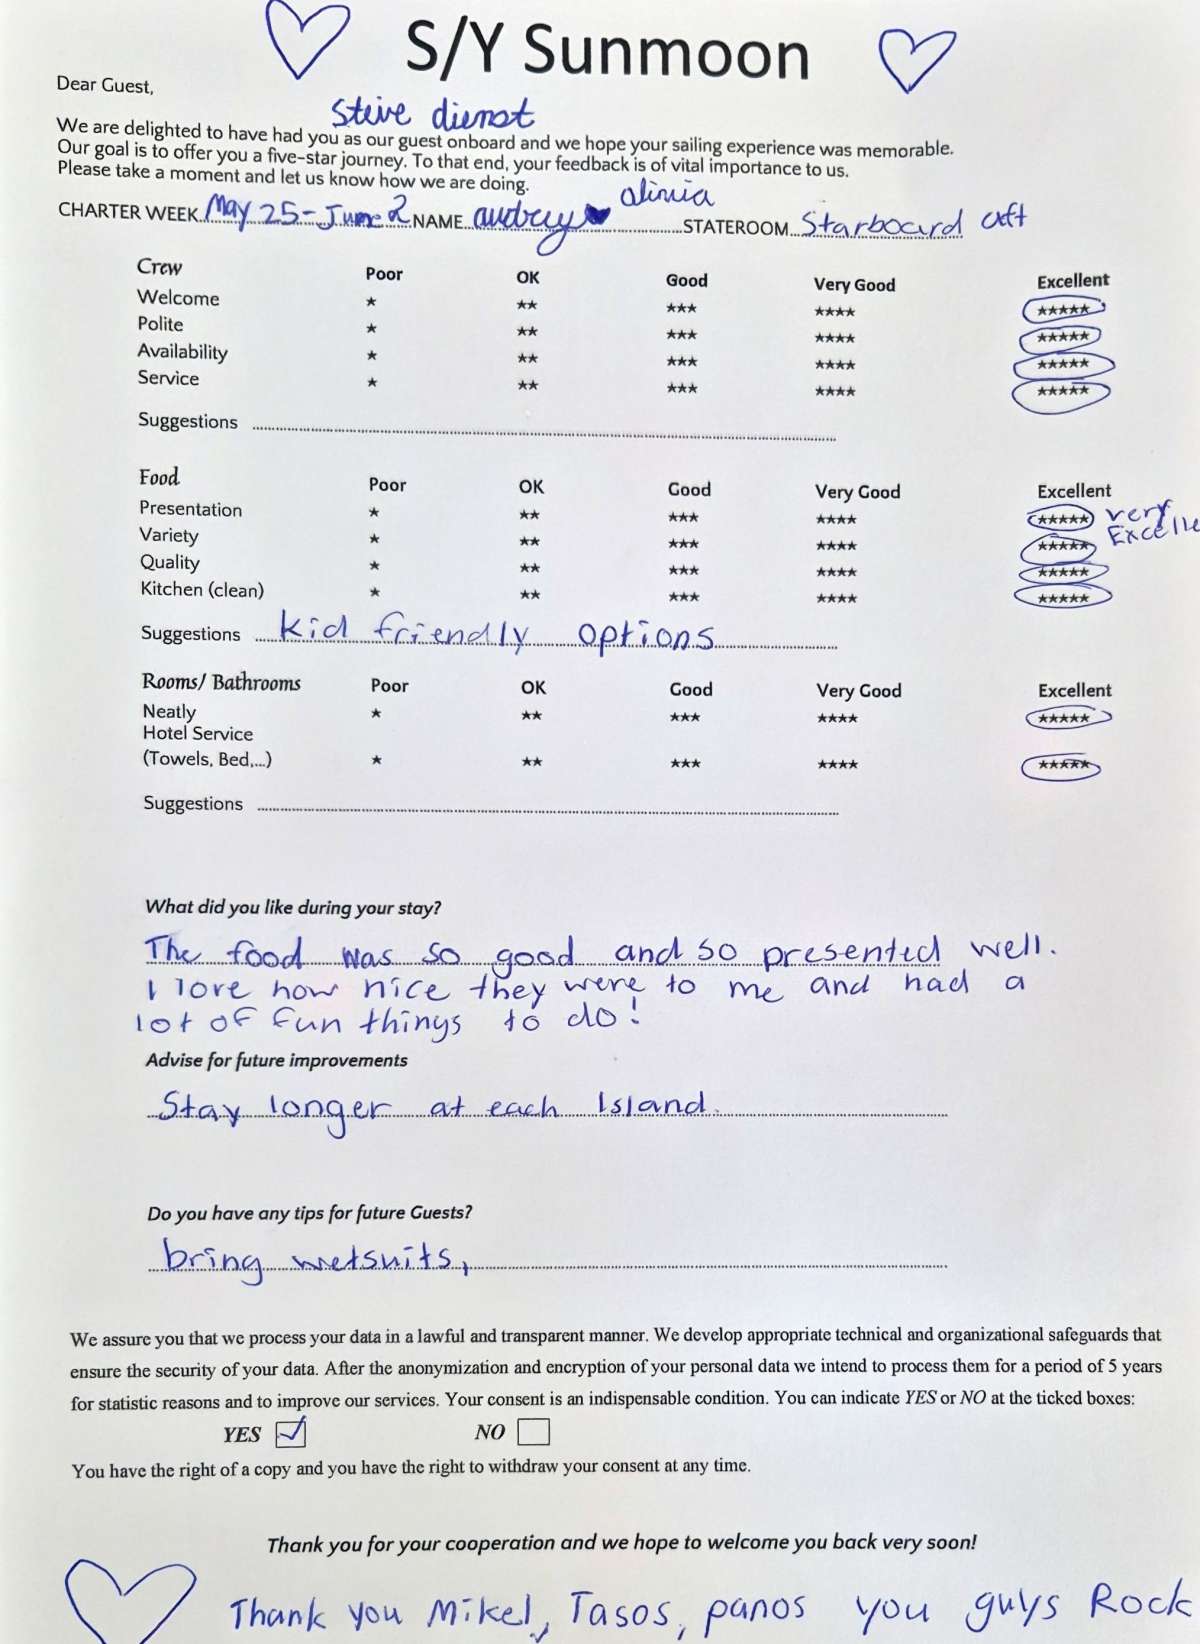 S/Y Sunmoon
Dear Guest,
steve dienst
We are delighted to have had you as our guest onboard and we hope your sailing experience was memorable.
Our goal is to offer you a five-star journey. To that end, your feedback is of vital importance to us.
Please take a moment and let us know how we are doing.
CHARTER WEEK May 25 - June 2 NAME audrey alinia STATEROOM Starboard aft
Crew Poor OK Good Very Good Excellent
Welcome ★ ★★ ★★★ ★★★★ ★★★★★
Polite ★ ★★ ★★★ ★★★★ ★★★★★
Availability ★ ★★ ★★★ ★★★★ ★★★★★
Service ★ ★★ ★★★ ★★★★ ★★★★★
Suggestions
Food Poor OK Good Very Good Excellent
Presentation ★ ★★ ★★★ ★★★★ ★★★★★ very
Excelle
Variety ★ ★★ ★★★ ★★★★ ★★★★★
Quality ★ ★★ ★★★ ★★★★ ★★★★★
Kitchen (clean) ★ ★★ ★★★ ★★★★ ★★★★★
Suggestions kid friendly options
Rooms/ Bathrooms Poor OK Good Very Good Excellent
Neatly ★ ★★ ★★★ ★★★★ ★★★★★
Hotel Service
(Towels, Bed,...) ★ ★★ ★★★ ★★★★ ★★★★★
Suggestions
What did you like during your stay?
The food was so good and so presented well.
I love how nice they were to me and had a
lot of fun things to do!
Advise for future improvements
Stay longer at each Island.
Do you have any tips for future Guests?
bring wetsuits,
We assure you that we process your data in a lawful and transparent manner. We develop appropriate technical and organizational safeguards that
ensure the security of your data. After the anonymization and encryption of your personal data we intend to process them for a period of 5 years
for statistic reasons and to improve our services. Your consent is an indispensable condition. You can indicate YES or NO at the ticked boxes:
YES NO
You have the right of a copy and you have the right to withdraw your consent at any time.
Thank you for your cooperation and we hope to welcome you back very soon!
Thank you Mikel, Tasos, panos you guys Rock